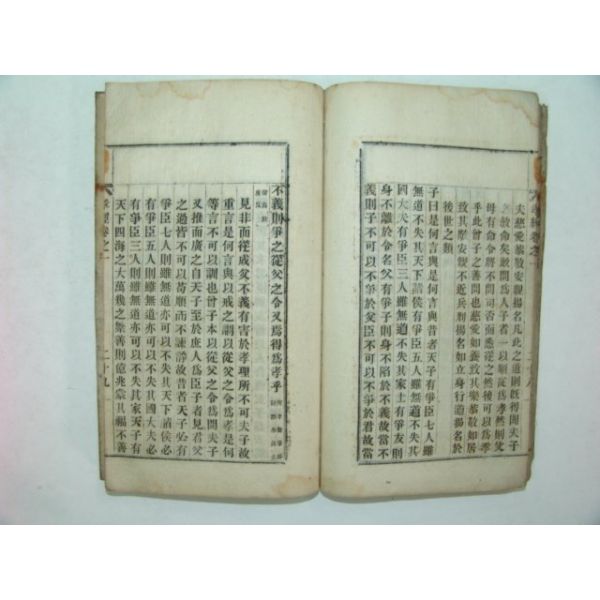 夫慈愛恭敬安親揚名凡此之道則旣得聞夫子
之敎命矣敢問爲人子者一以順從爲孝然則父
母有命令將不問可否而悉從之然後可以爲孝
乎此曾子之善問也慈愛如養致其樂恭敬如居
致其安親不近兵刑揚名如立身行道揚名於
後世之類
子曰是何言與是何言與昔者天子有爭臣七人雖
無道不失其天下諸侯有爭臣五人雖無道不失其
國大夫有爭臣三人雖無道不失其家士有爭友則
身不離於令名父有爭子則身不陷於不義故當不
義則子不可以不爭於父臣不可以不爭於君故當
不義則爭之從父之令又焉得爲孝乎
見非而從成父不義有害於孝理所不可夫子故
重言是何言與以戒之謂以從父之令爲孝是何
等言不可以訓也曾子本以從父之令爲問夫子
又推而廣之自天子至於庶人爲臣子者見君父
之過皆不可以苟順而不諫諍故昔者天子必有
爭臣七人則雖無道亦可以不失其天下諸侯必
有爭臣五人則雖無道亦可以不失其國大夫必
有爭臣三人則雖無道亦可以不失其家天子有
天下四海之大萬幾之衆善則億兆蒙其福不善
卷之一
二十九